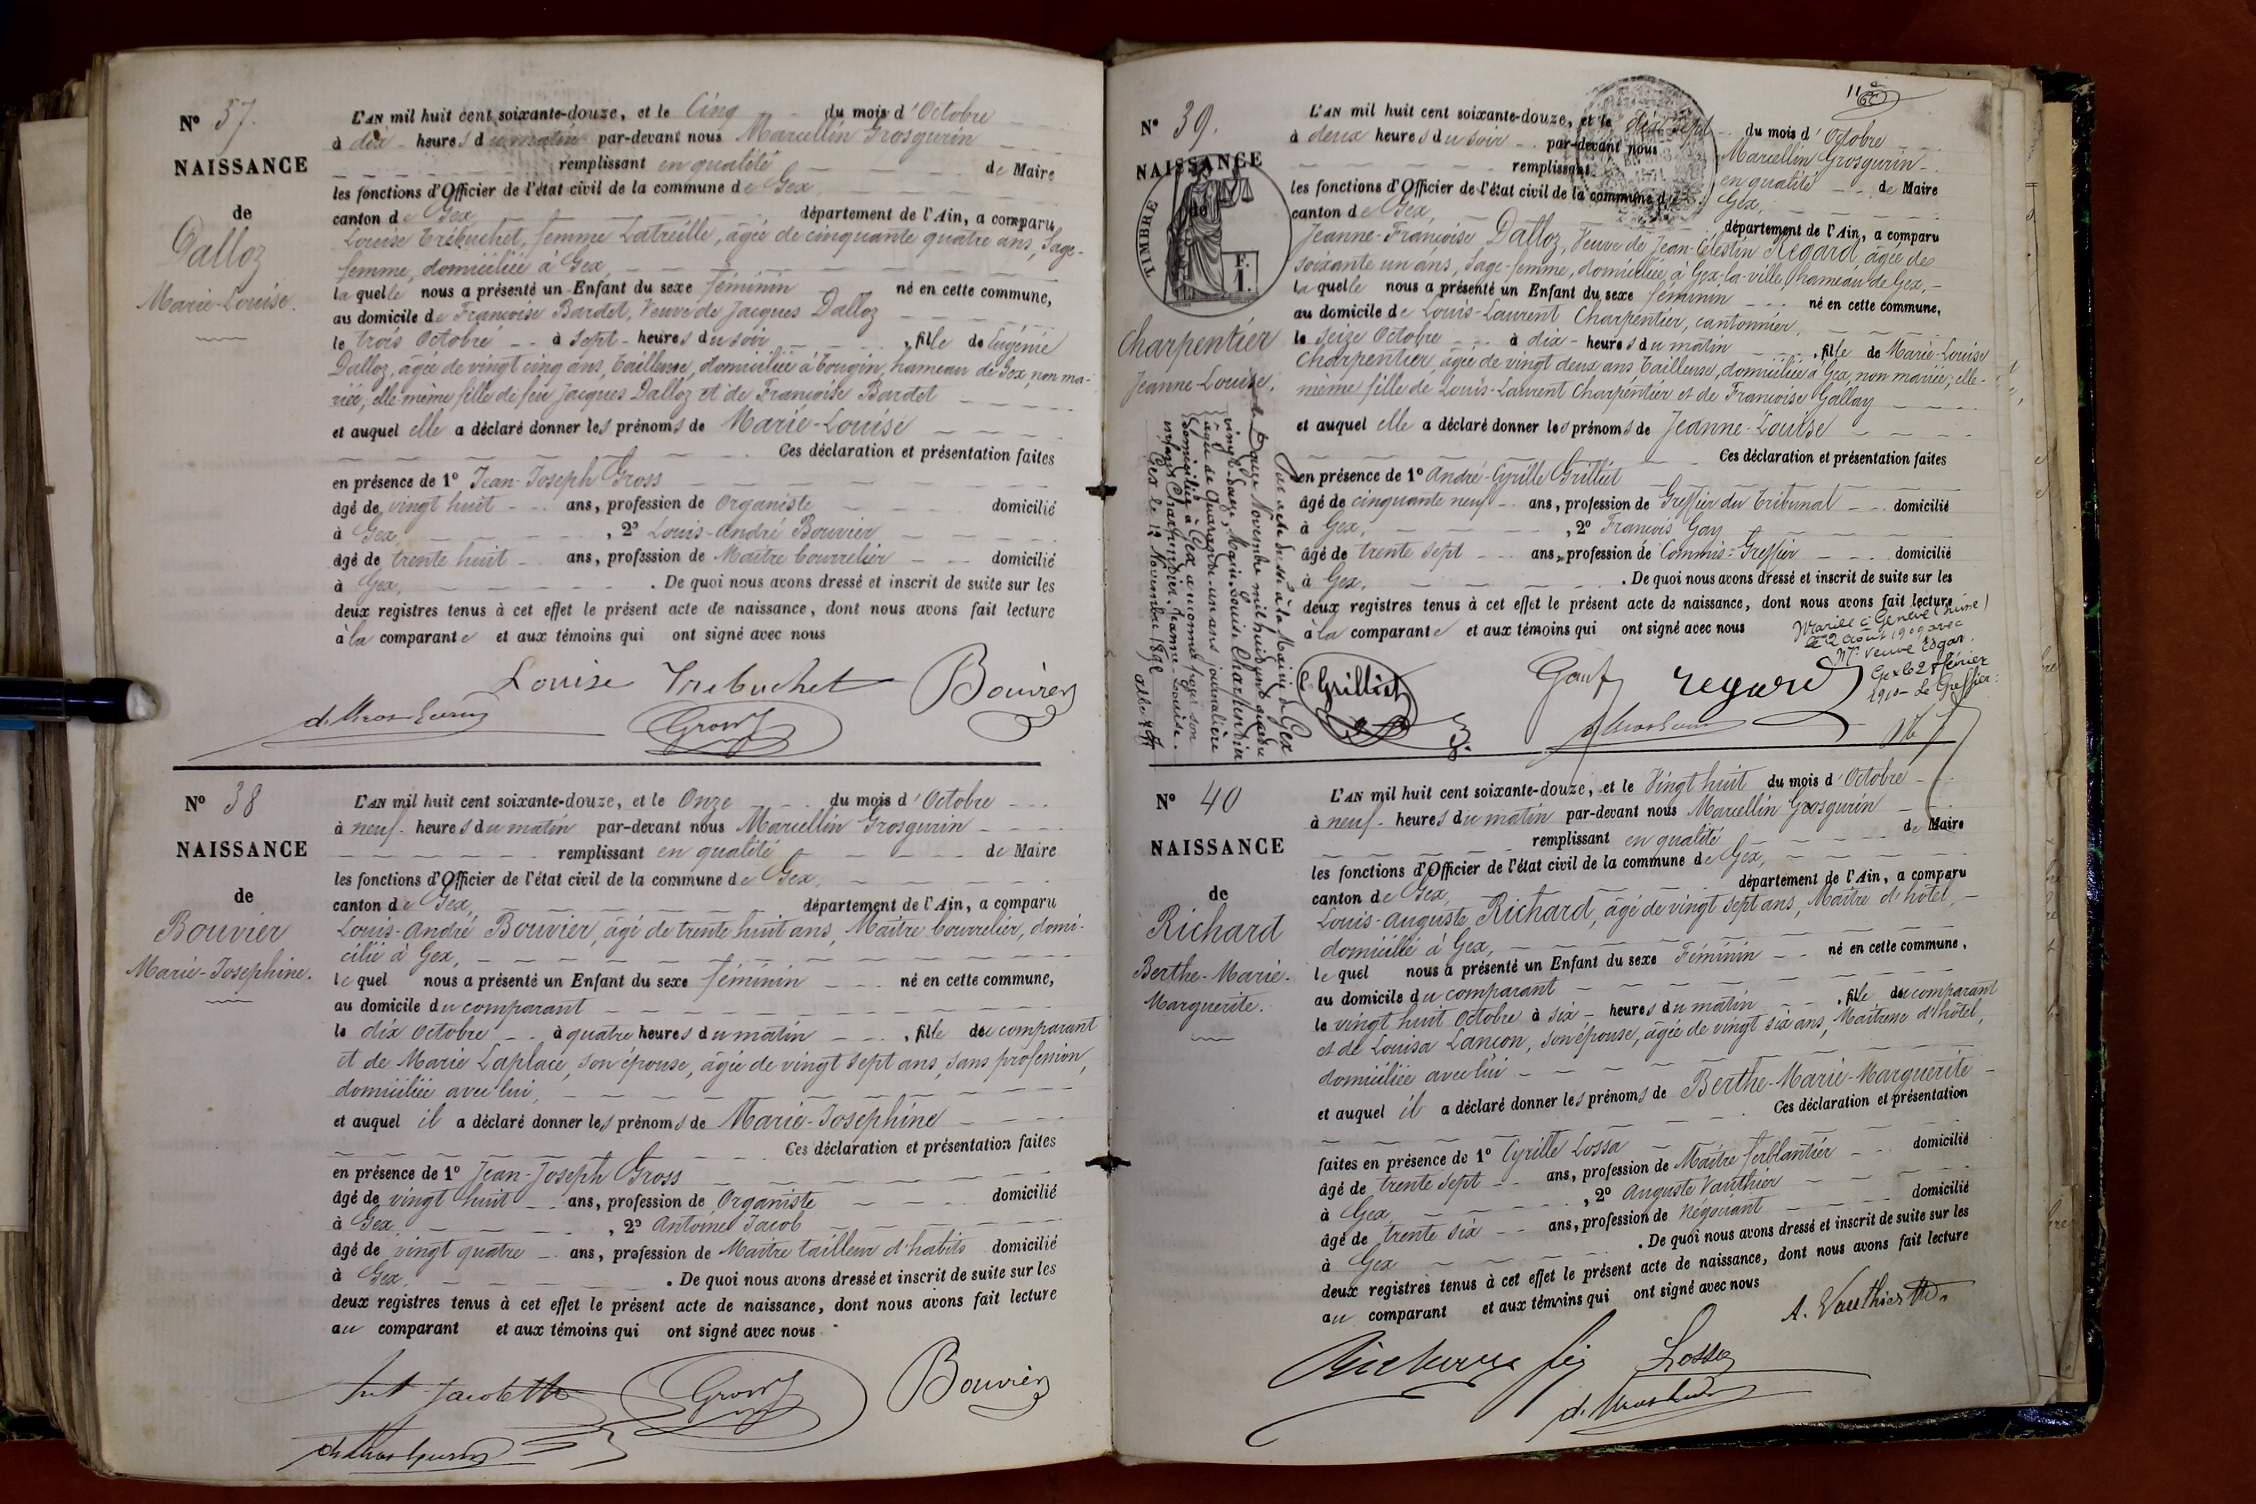 N° 37.
NAISSANCE
de
Dalloz
Marie-Louise.
L'AN mil huit cent soixante-douze, et le Cinq du mois d'Octobre
à dix heures du matin par-devant nous Marcellin Grosgurin
remplissant en qualité de Maire
les fonctions d'Officier de l'état civil de la commune de Gex
canton de Gex département de l'Ain, a comparu
Louise Trébuchet, femme Latreille, âgée de cinquante quatre ans, Sage-
femme, domiciliée à Gex
laquelle nous a présenté un Enfant du sexe féminin né en cette commune,
au domicile de Françoise Bardet, Veuve de Jacques Dalloz
le trois Octobre à sept heures du soir, fille de Eugénie
Dalloz, âgée de vingt cinq ans, Tailleuse, domiciliée à Tougin, hameau de Gex, non ma-
riée; elle-même fille de feu Jacques Dalloz et de Françoise Bardet
et auquel elle a déclaré donner les prénoms de Marie-Louise
Ces déclaration et présentation faites
en présence de 1° Jean-Joseph Gross
âgé de vingt huit ans, profession de Organiste domicilié
à Gex, 2° Louis-André Bouvier
âgé de trente huit ans, profession de Maître bourrelier domicilié
à Gex, . De quoi nous avons dressé et inscrit de suite sur les
deux registres tenus à cet effet le présent acte de naissance, dont nous avons fait lecture
à la comparante et aux témoins qui ont signé avec nous
Louise Trebuchet Bouvier
Gross
N° 38
NAISSANCE
de
Bouvier
Marie-Josephine.
L'AN mil huit cent soixante-douze, et le Onze du mois d'Octobre
à neuf heures du matin par-devant nous Marcellin Grosgurin
remplissant en qualité de Maire
les fonctions d'Officier de l'état civil de la commune de Gex,
canton de Gex, département de l'Ain, a comparu
Louis-André Bouvier, âgé de trente huit ans, Maître bourrelier, domi-
cilié à Gex,
lequel nous a présenté un Enfant du sexe féminin né en cette commune,
au domicile du comparant
le dix Octobre à quatre heures du matin, fille du comparant
et de Marie Laplace, son épouse, âgée de vingt sept ans, sans profession,
domiciliée avec lui,
et auquel il a déclaré donner les prénoms de Marie-Josephine
Ces déclaration et présentation faites
en présence de 1° Jean-Joseph Gross
âgé de vingt huit ans, profession de Organiste domicilié
à Gex, 2° Antoine Jacob
âgé de vingt quatre ans, profession de Maître tailleur d'habits domicilié
à Gex, . De quoi nous avons dressé et inscrit de suite sur les
deux registres tenus à cet effet le présent acte de naissance, dont nous avons fait lecture
au comparant et aux témoins qui ont signé avec nous
Gross Bouvier
11
N° 39.
NAISSANCE
de
TIMBRE
F.
1.
Charpentier
Jeanne-Louise.
L'AN mil huit cent soixante-douze, et le dix sept du mois d'Octobre
à deux heures du soir par-devant nous Marcellin Grosgurin
remplissant en qualité de Maire
les fonctions d'Officier de l'état civil de la commune de Gex,
canton de Gex, département de l'Ain, a comparu
Jeanne-Françoise Dalloz, Veuve de Jean-Célestin Regard, âgée de
soixante un ans, Sage-femme, domiciliée à Gex-la-ville, hameau de Gex,
laquelle nous a présenté un Enfant du sexe féminin né en cette commune,
au domicile de Louis-Laurent Charpentier, cantonnier,
le Seize Octobre à dix heures du matin, fille de Marie-Louise
Charpentier, âgée de vingt deux ans Tailleuse, domiciliée à Gex, non mariée; elle-
même fille de Louis-Laurent Charpentier et de Françoise Gallay
et auquel elle a déclaré donner les prénoms de Jeanne-Louise
Ces déclaration et présentation faites
en présence de 1° André-Cyrille Grilliet
âgé de cinquante neuf ans, profession de Greffier du Tribunal domicilié
à Gex, 2° François Gay
âgé de trente sept ans, profession de Commis-Greffier domicilié
à Gex, . De quoi nous avons dressé et inscrit de suite sur les
deux registres tenus à cet effet le présent acte de naissance, dont nous avons fait lecture
à la comparante et aux témoins qui ont signé avec nous
Par acte dressé à la Mairie de Gex
le Douze Novembre mil huit cent quatre
vingt-douze, Marie Louise Charpentier
âgée de Quarante-un ans journalière
domiciliée à Gex a reconnu pour son
enfant Charpentier Jeanne-Louise.
Gex le 12 Novembre 1892
Mariée à Genève (Suisse)
le 2 août 1909 avec
Mr Veuve Edgar.
Gex le 28 février
1910 Le Greffier:
Grilliet Gay regard
N° 40
NAISSANCE
de
Richard
Berthe-Marie-
Marguerite.
L'AN mil huit cent soixante-douze, et le Vingt huit du mois d'Octobre
à neuf heures du matin par-devant nous Marcellin Grosgurin
remplissant en qualité de Maire
les fonctions d'Officier de l'état civil de la commune de Gex,
canton de Gex, département de l'Ain, a comparu
Louis-Auguste Richard, âgé de vingt sept ans, Maître d'hôtel,
domicilié à Gex,
lequel nous a présenté un Enfant du sexe Féminin né en cette commune,
au domicile du comparant
le vingt huit Octobre à six heures du matin, fille du comparant
et de Louisa Lançon, son épouse, âgée de vingt six ans, Maîtresse d'hôtel,
domiciliée avec lui
et auquel il a déclaré donner les prénoms de Berthe-Marie-Marguerite
Ces déclaration et présentation
faites en présence de 1° Cyrille Lossa
âgé de trente sept ans, profession de Maître ferblantier domicilié
à Gex, 2° Auguste Vauthier
âgé de trente six ans, profession de négociant domicilié
à Gex . De quoi nous avons dressé et inscrit de suite sur les
deux registres tenus à cet effet le présent acte de naissance, dont nous avons fait lecture
au comparant et aux témoins qui ont signé avec nous
A. Vauthier
Lossa